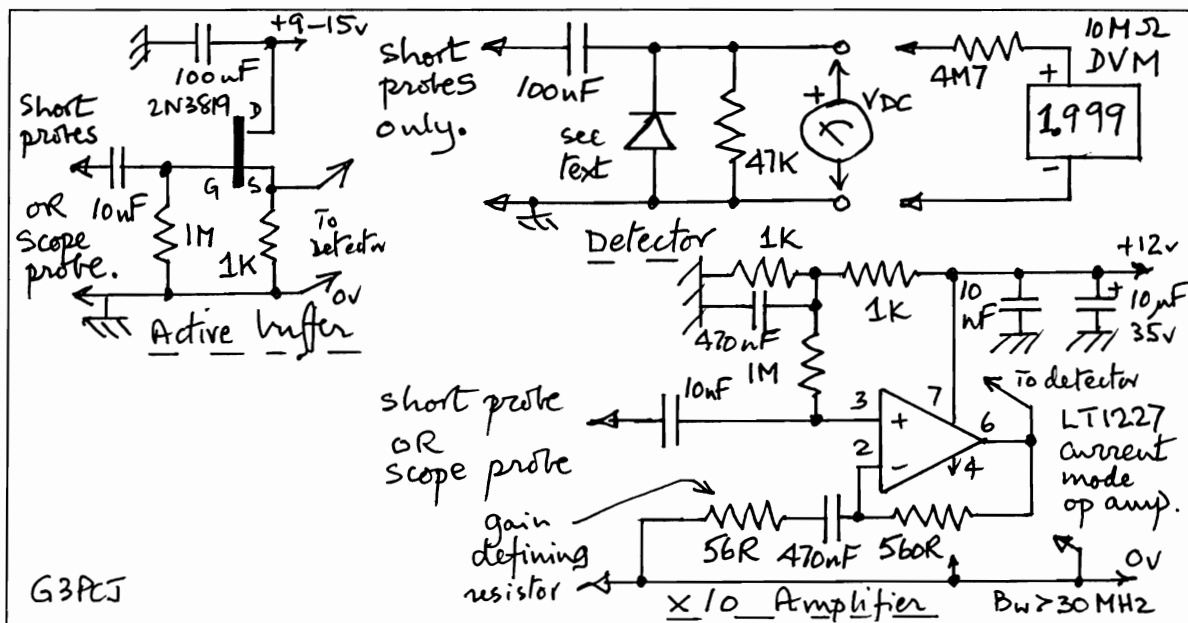 +9-15v
100nF
2N3819
D
Short
probes
10nF
G
S
OR
Scope
probe.
1M
1K
To
Detector
0v
Active buffer
Short
probes
only.
100nF
see
text
47K
+
VDC
4M7
10MΩ
DVM
+
1.999
-
Detector
1K
1K
+12v
470nF
1M
10
nF
+
10µF
35v
Short probe
OR
Scope probe
10nF
3
+
7
2
-
6
4
To detector
LT1227
current
mode
op amp.
gain
defining
resistor
56R
470nF
560R
0v
x10 Amplifier
Bw>30MHz
G3PCJ